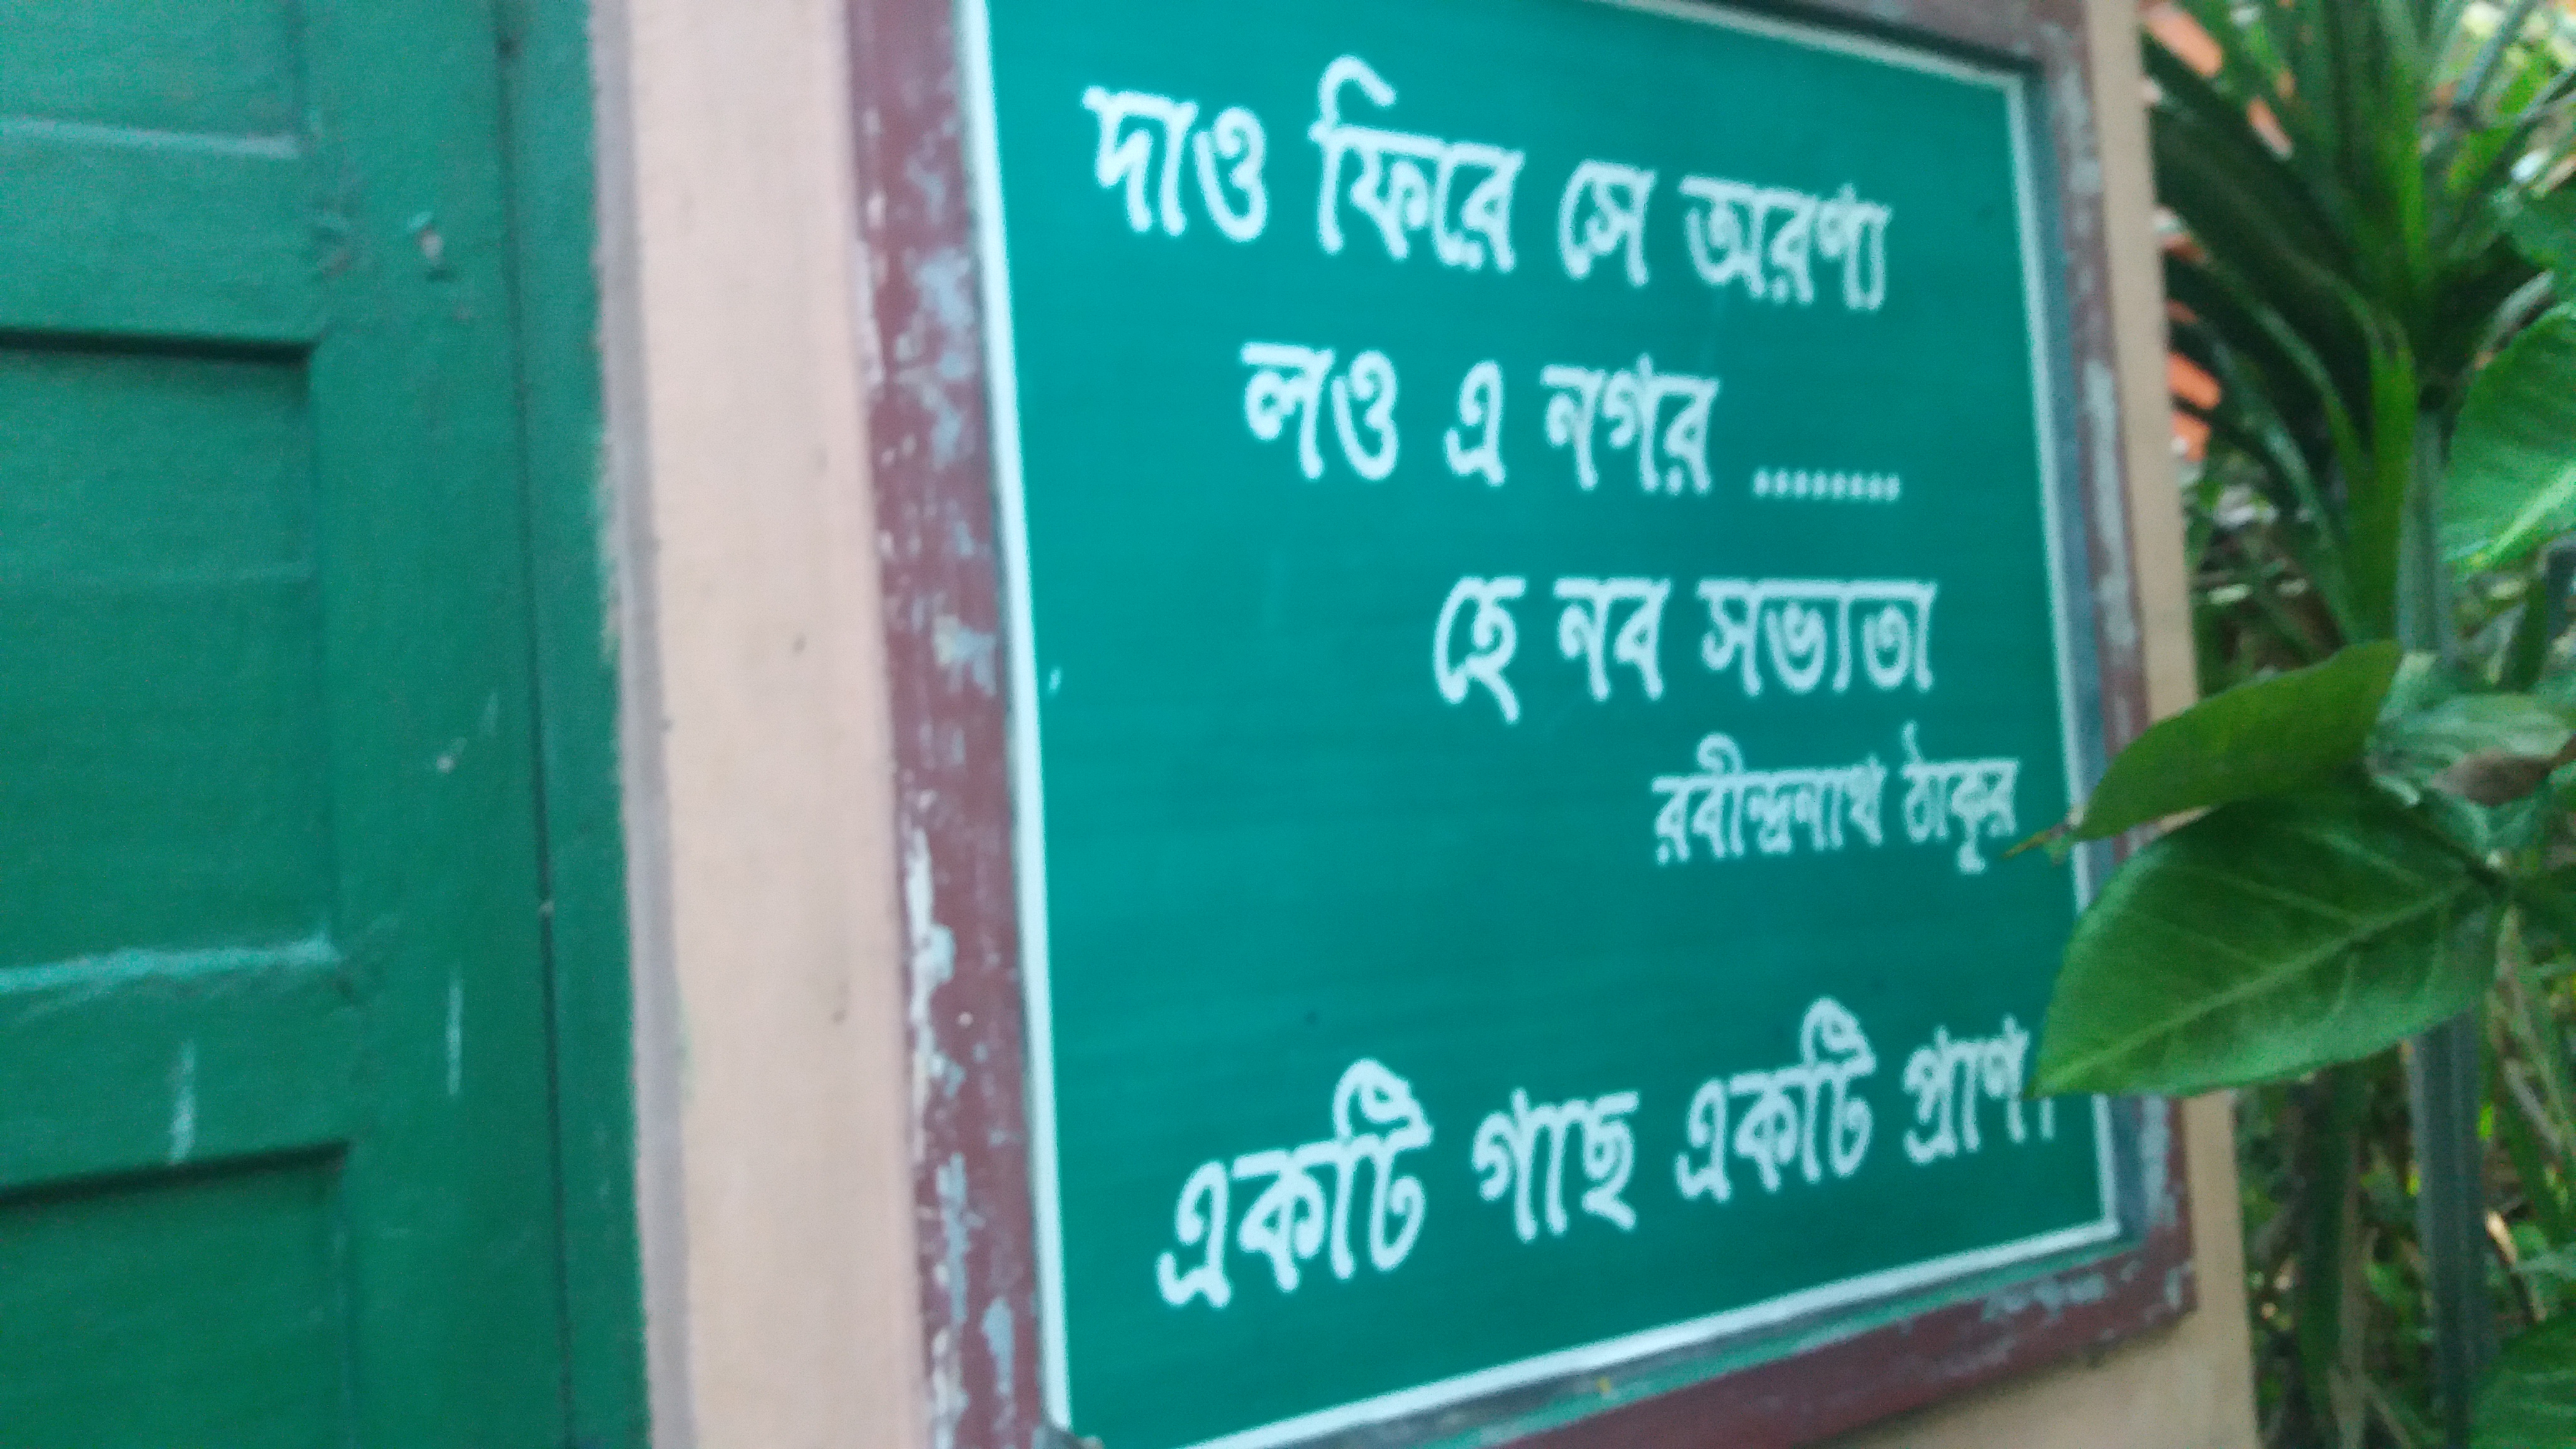 দাও ফিরে সে অরণ্য
লও এ নগর ........
হে নব সভ্যতা
রবীন্দ্রনাথ ঠাকুর
একটি গাছ একটি প্রাণ।